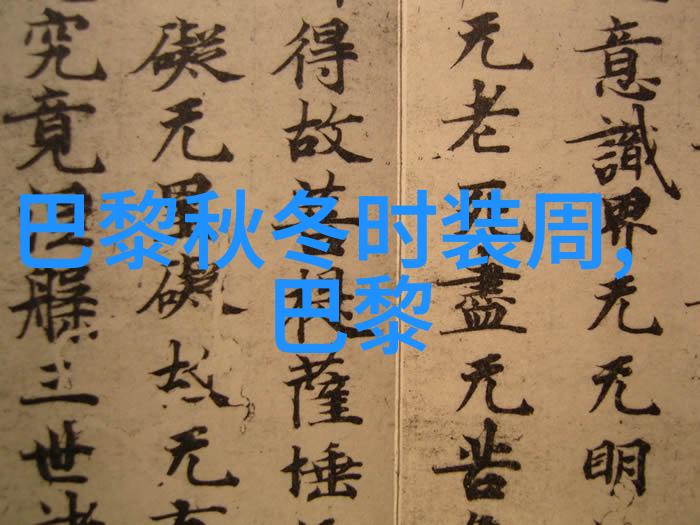 巴黎秋冬时装周,
巴黎
意識界无无明
无老死盡无苦
得故菩提薩埵
礙无罣礙故无有
究竟涅槃三世諸